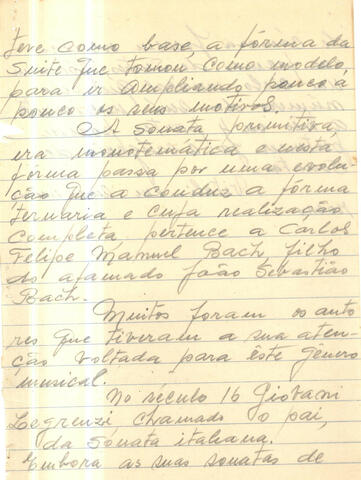 teve como base, a fórma da
Suite que tomou como modelo,
para ir ampliando pouco á
pouco os seus motivos.
A Sonata primitiva,
era monotemática e nesta
forma passa por uma evolu-
ção que a conduz a fórma
ternaria e cuja realização
completa pertence a Carlos
Felipe Manuel Bach filho
do afamado João Sebastião
Bach.
Muitos foram os auto
res que tiveram a sua aten-
ção voltada para este genero
musical.
No século 16 Giovani
Legrenzi, chamado o pai,
da Sonata italiana.
Embora as suas sonatas de